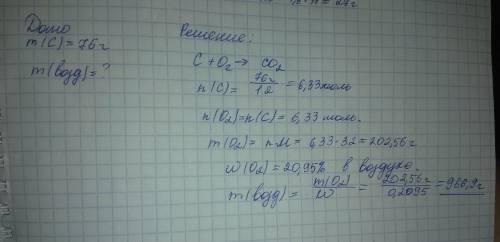 Дано
m(C)=76г
m(возд)=?
Решение:
C+O₂→ CO₂
n(C)= 76г/12 = 6,33моль
n(O₂)=n(C)= 6,33 моль.
m(O₂)= nM= 6,33·32=202,56г.
ω(O₂)=20,95% в воздухе.
m(возд)= m(O₂)/ω = 202,56г/0,2095 =966,9г